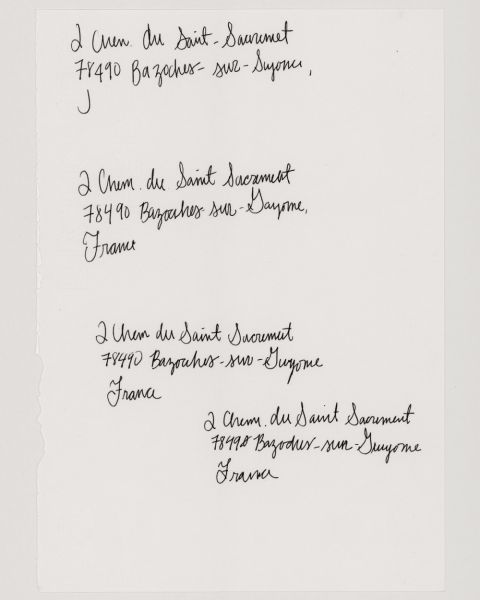 2 Chem. du Saint-Sacremet
78490 Bazoches-sur-Guyonne,
2 Chem. du Saint Sacrement
78490 Bazoches-sur-Guyonne,
France
2 Chem du Saint Sacrement
78490 Bazoches-sur-Guyonne
France
2 Chem. du Saint Sacrement
78490 Bazoches-sur-Guyonne
France